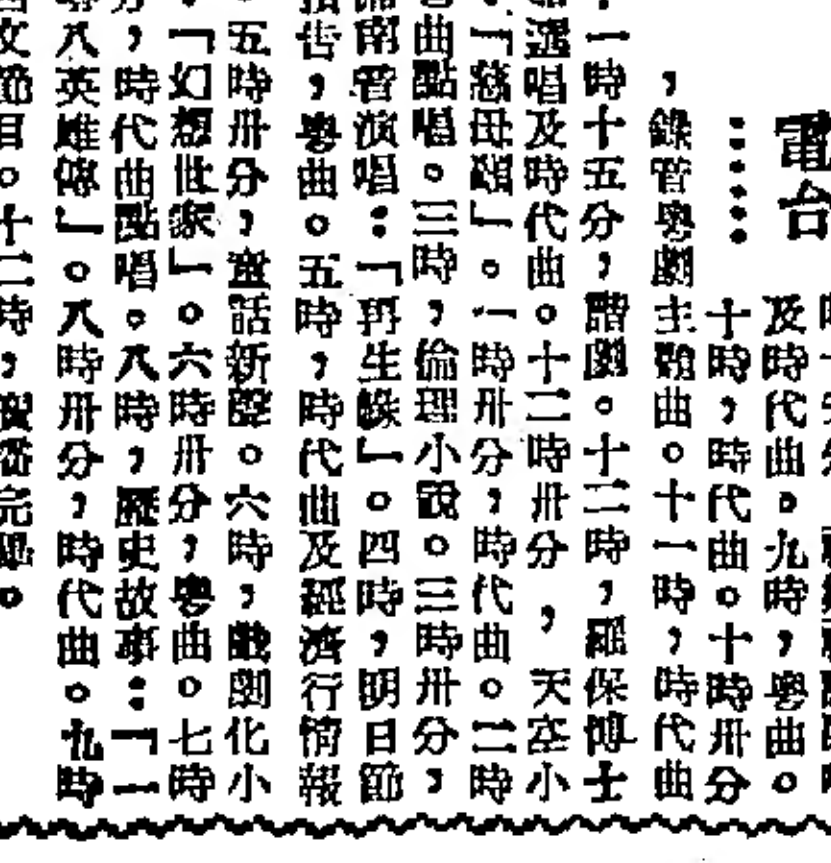 電台
及時代曲。九時，粵曲。
十時，時代曲。十時卅分
，錄音粵劇主題曲。十一時，時代曲
一時十五分，諧劇。十二時，羅保博士
選唱及時代曲。十二時卅分，天空小
「慈母頌」。一時卅分，時代曲。二時
曲點唱。三時，倫理小說。三時卅分，
南音演唱：「再生緣」。四時，明日節
告，粵曲。五時，時代曲及經濟行情報
五時卅分，童話新聲。六時，戲劇化小
「幻想世家」。六時卅分，粵曲。七時
分，時代曲點唱。八時，歷史故事：「一
八英雄傳」。八時卅分，時代曲。九時
文節目。十二時，播完。